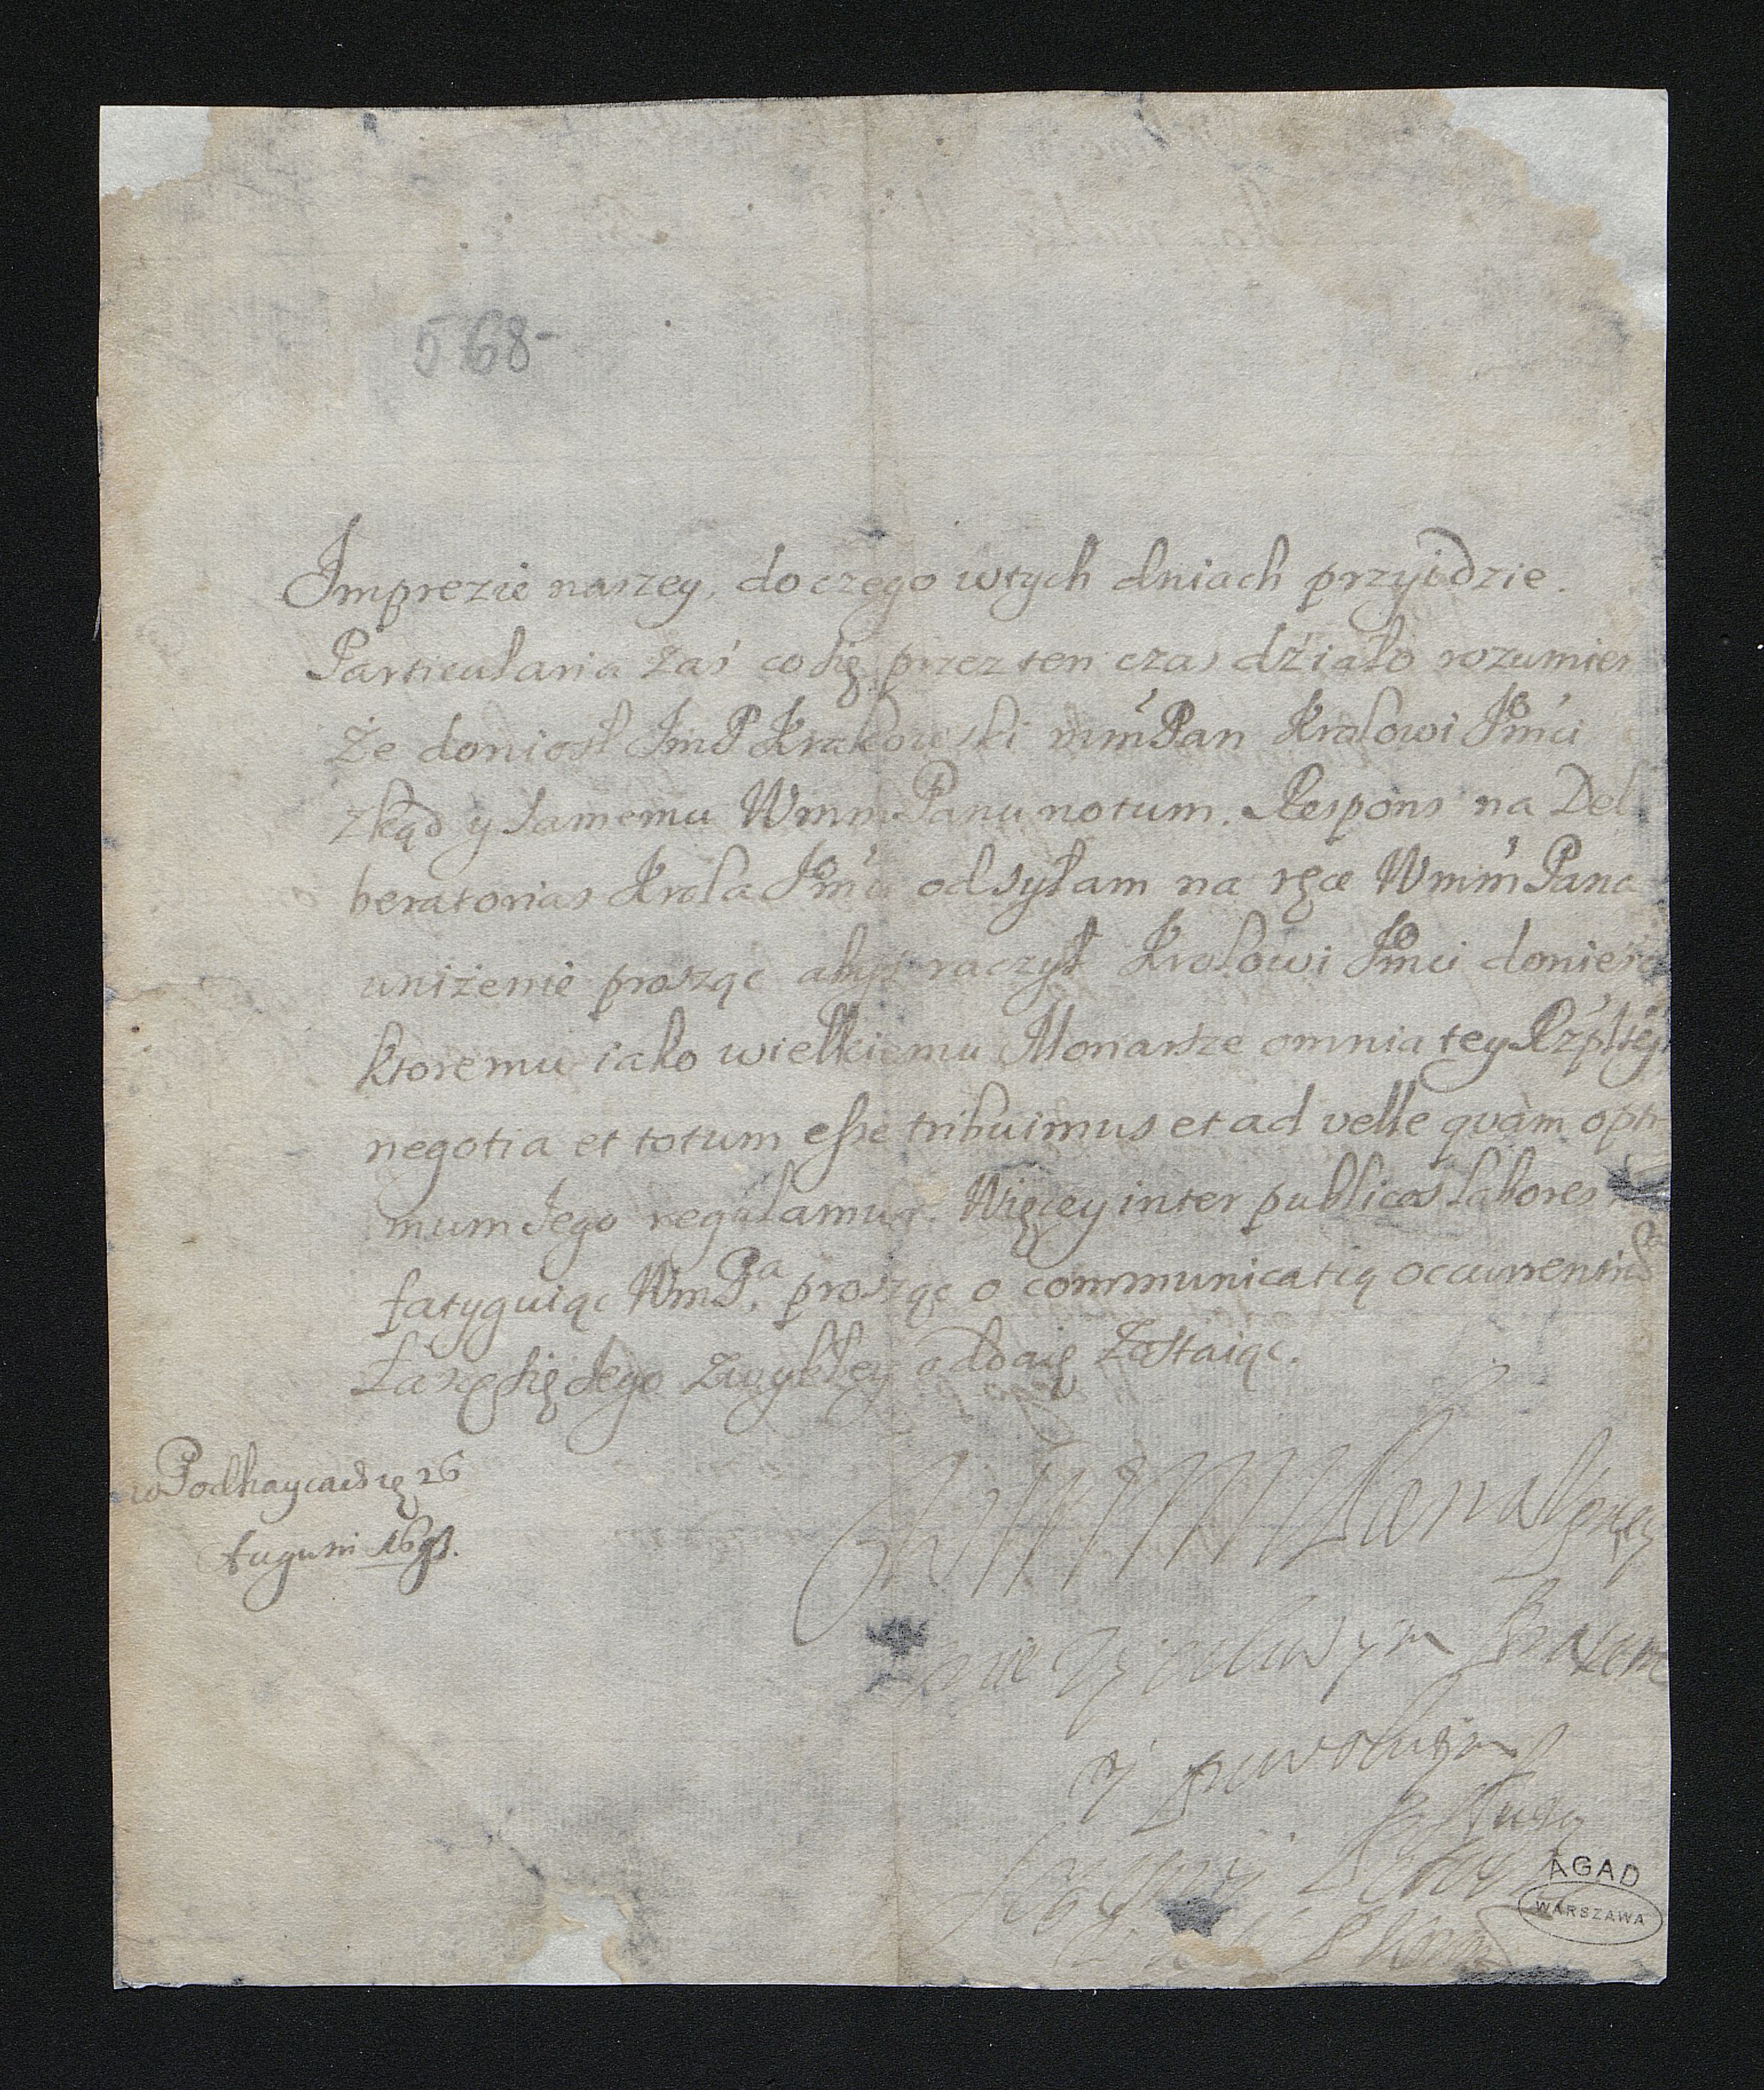 568-
Imprezie naszey, do czego wtych dniach przyidzie.
Particularia zaś co się przez ten czas działo rozumiem
Że doniosł JmP Krakowski mmPan Krolowi Jmći
zkąd y samemu WmmPanu notum. Respons na Deli
beratorias Krola Jmći odsyłam na ręce WmmPana
uniżenie prosząc abyś raczył Krolowi Jmći donieść
ktoremu iako wielkiemu Monarsze omnia tey Rzpltey
negotia et totum esse tribuimus et ad velle quàm opti
mum Jego regulamur. Więcey inter publicos labores
fatyguiąc WmPa. proszę o communicatią occurrentiis
Łasce się Jego zwykłey oddaię Zostaiąc.
w Podhaycach 26
Augusti 1691.
WMM Pana
zyczliwym Bratem
y powolnym
sługą
AGAD
WARSZAWA